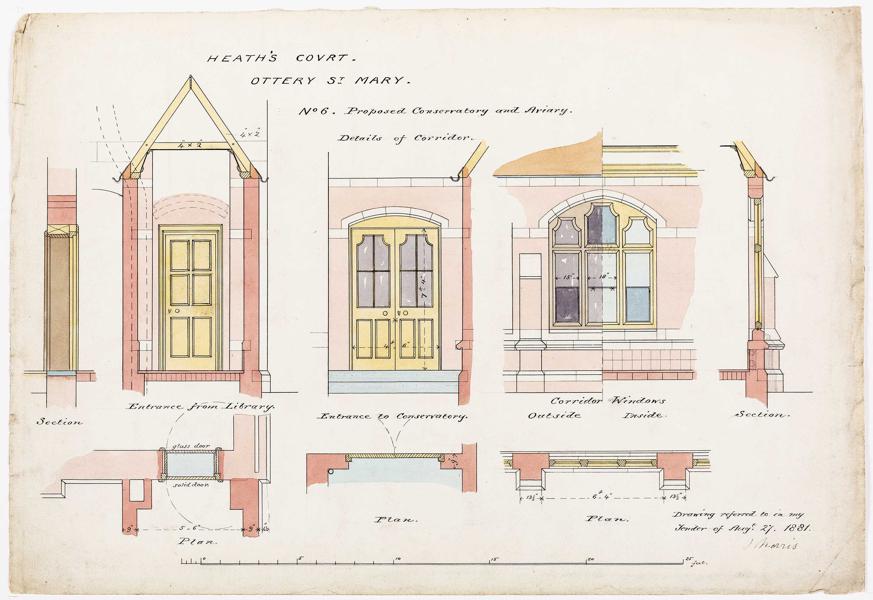 HEATH'S COVRT.
OTTERY ST MARY.
No 6. Proposed Conservatory and Aviary.
Details of Corridor.
4 x 2
4" x 2"
7' 4"
4' 6"
15" 18"
Entrance from Library.
Entrance to Conservatory.
Corridor Windows
Outside Inside.
Section
Section.
glass door
solid door
9" 5-6" 9"
Plan.
Plan.
13½" 6'-4" 13½"
Plan.
Drawing referred to in my
Tender of Augt. 27. 1881.
J Morris
0 5 10 15 20 25 feet.